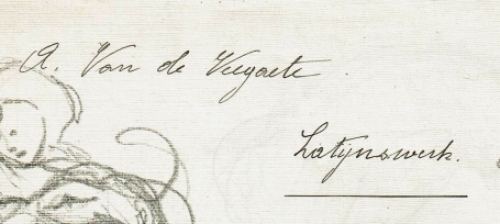 A. Van de Veegaete
Latijnswerk.